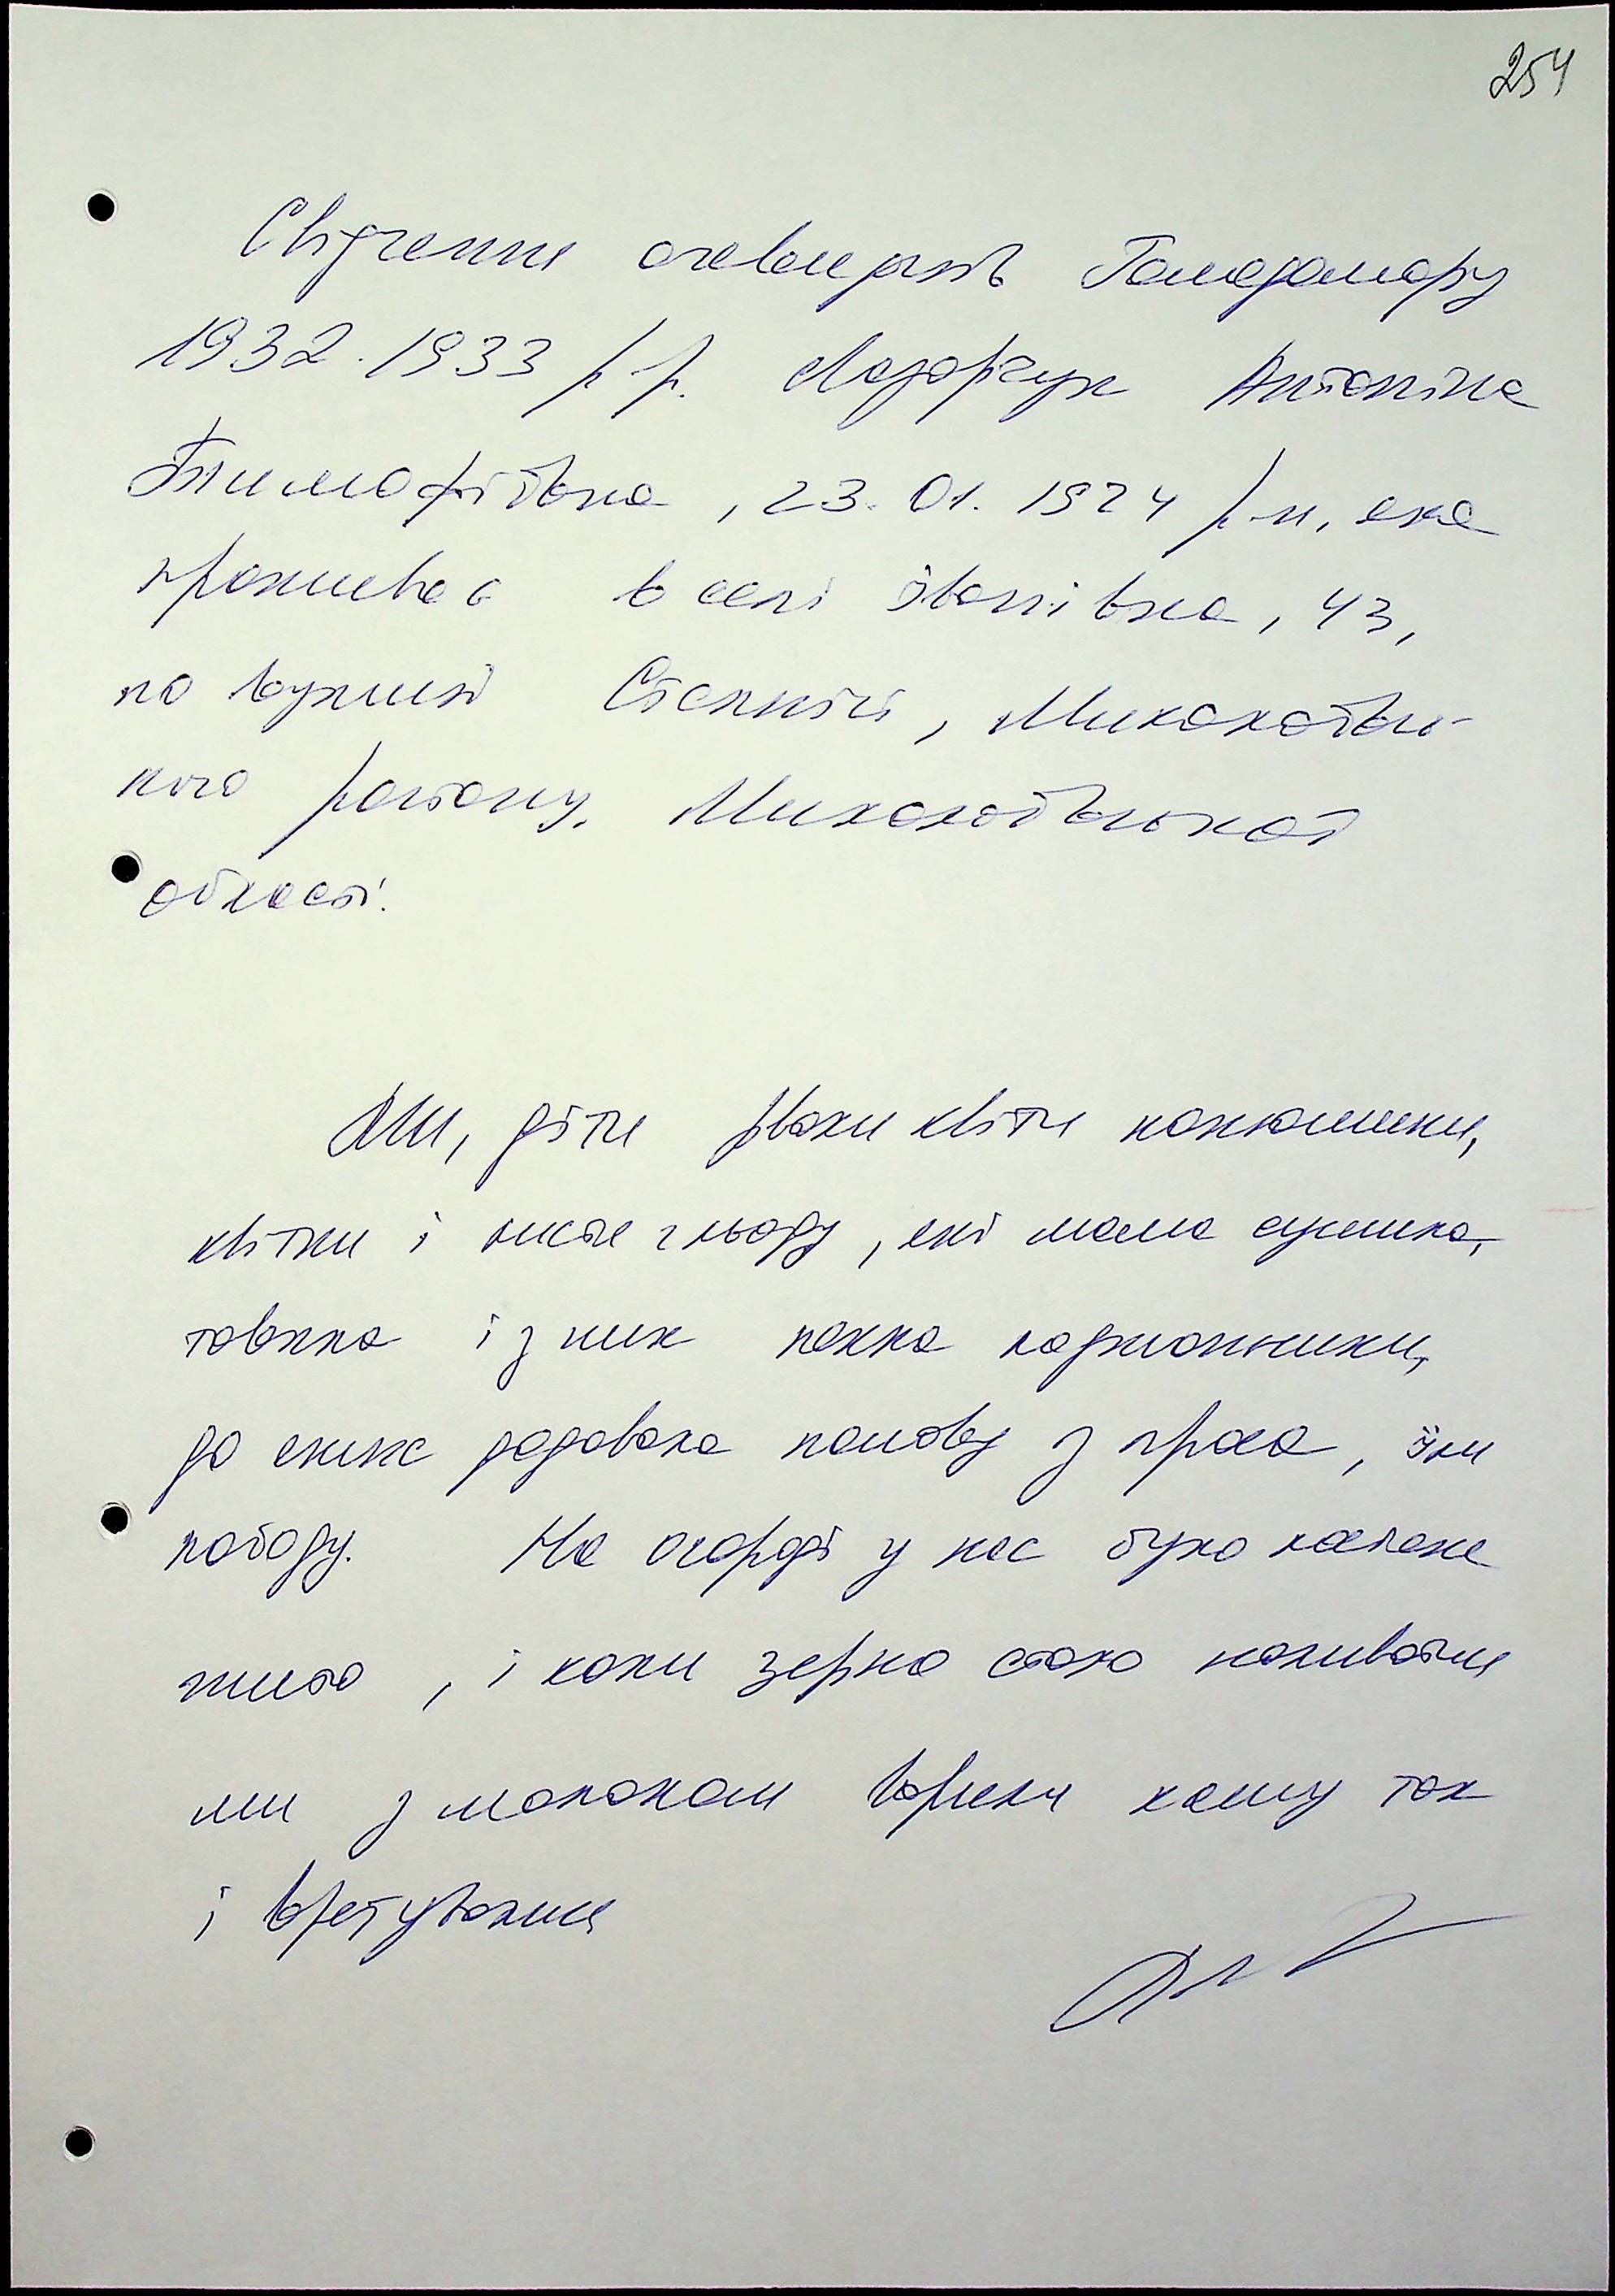 254
Свідчення очевидців Голодомору
1932-1933 р.р. Лазарчук Антоніна
Тимофіївна, 23.01.1924 р.н, яка
проживає в селі Іванівка, 43,
по вулиці Степній, Миколаївсь-
кого району, Миколаївської
області.
Ми, діти рвали квіти конюшини,
квітки і листя глоду, які мама сушила,
товкла і з них пекла
до яких додавала полову з проса, їли
лободу. На огороді у нас було
жито, і коли зерно стало наливатися
ми з молоком варили кашу так
і врятувалися